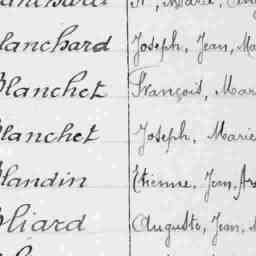 Blanchard Joseph, Jean, Ma
Blanchet François, Mari
Blanchet Joseph, Marie
Blandin Etienne, Jean,
Bliard Auguste, Jean,